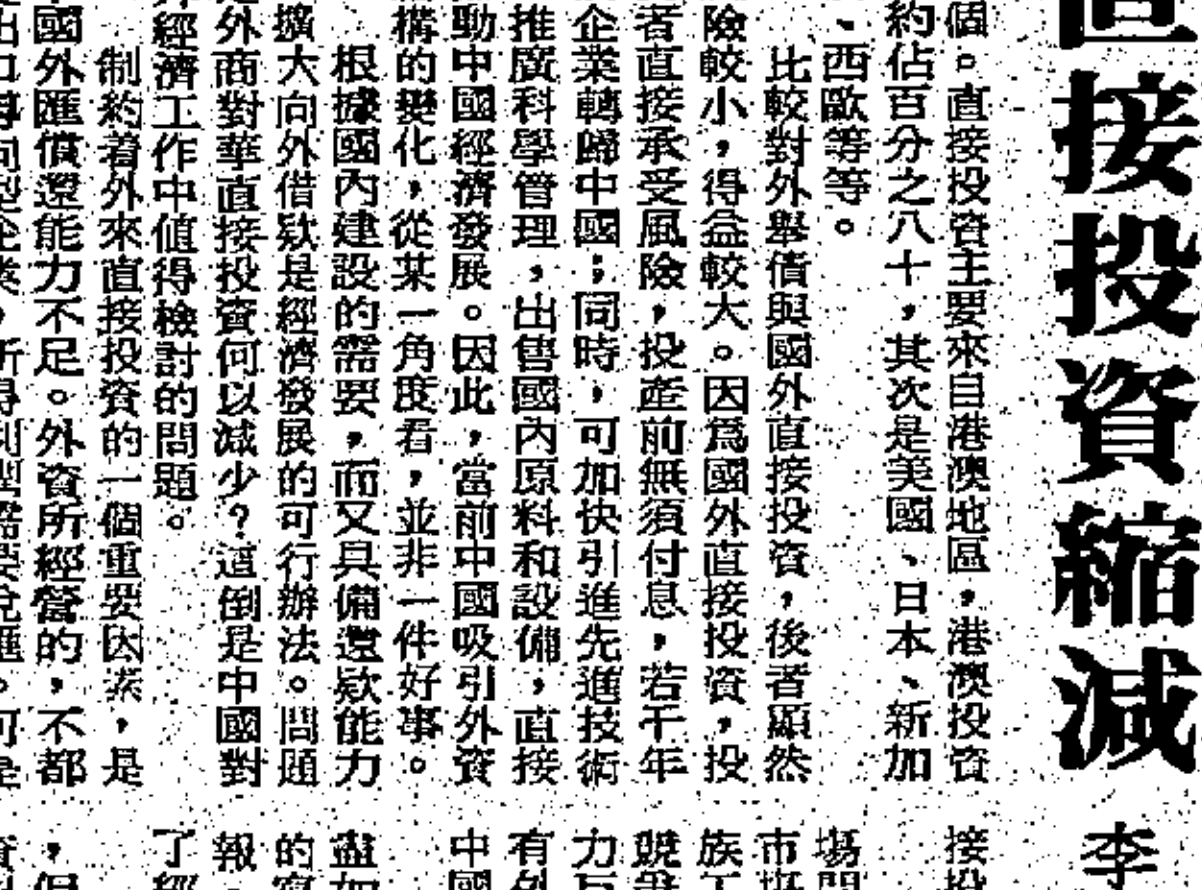 直接投資縮減
李
個。直接投資主要來自港澳地區，港澳投資
約佔百分之八十，其次是美國、日本、新加
、西歐等等。
比較對外舉債與國外直接投資，後者顯然
險較小，得益較大。因爲國外直接投資，投
者直接承受風險，投產前無須付息，若干年
企業轉歸中國；同時，可加快引進先進技術
推廣科學管理，出售國內原料和設備，直接
動中國經濟發展。因此，當前中國吸引外資
構的變化，從某一角度看，並非一件好事。
根據國內建設的需要，而又具備還欵能力
擴大向外借欵是經濟發展的可行辦法。問題
外商對華直接投資何以減少？這倒是中國對
經濟工作中値得檢討的問題。
制約着外來直接投資的一個重要因素，是
國外匯償還能力不足。外資所經營的，不都
出口導向型企業，所得利潤需要兌匯。可是
接投
場
市場
族工
競爭
力
有外
中國
盡如
的
報
了經
，但